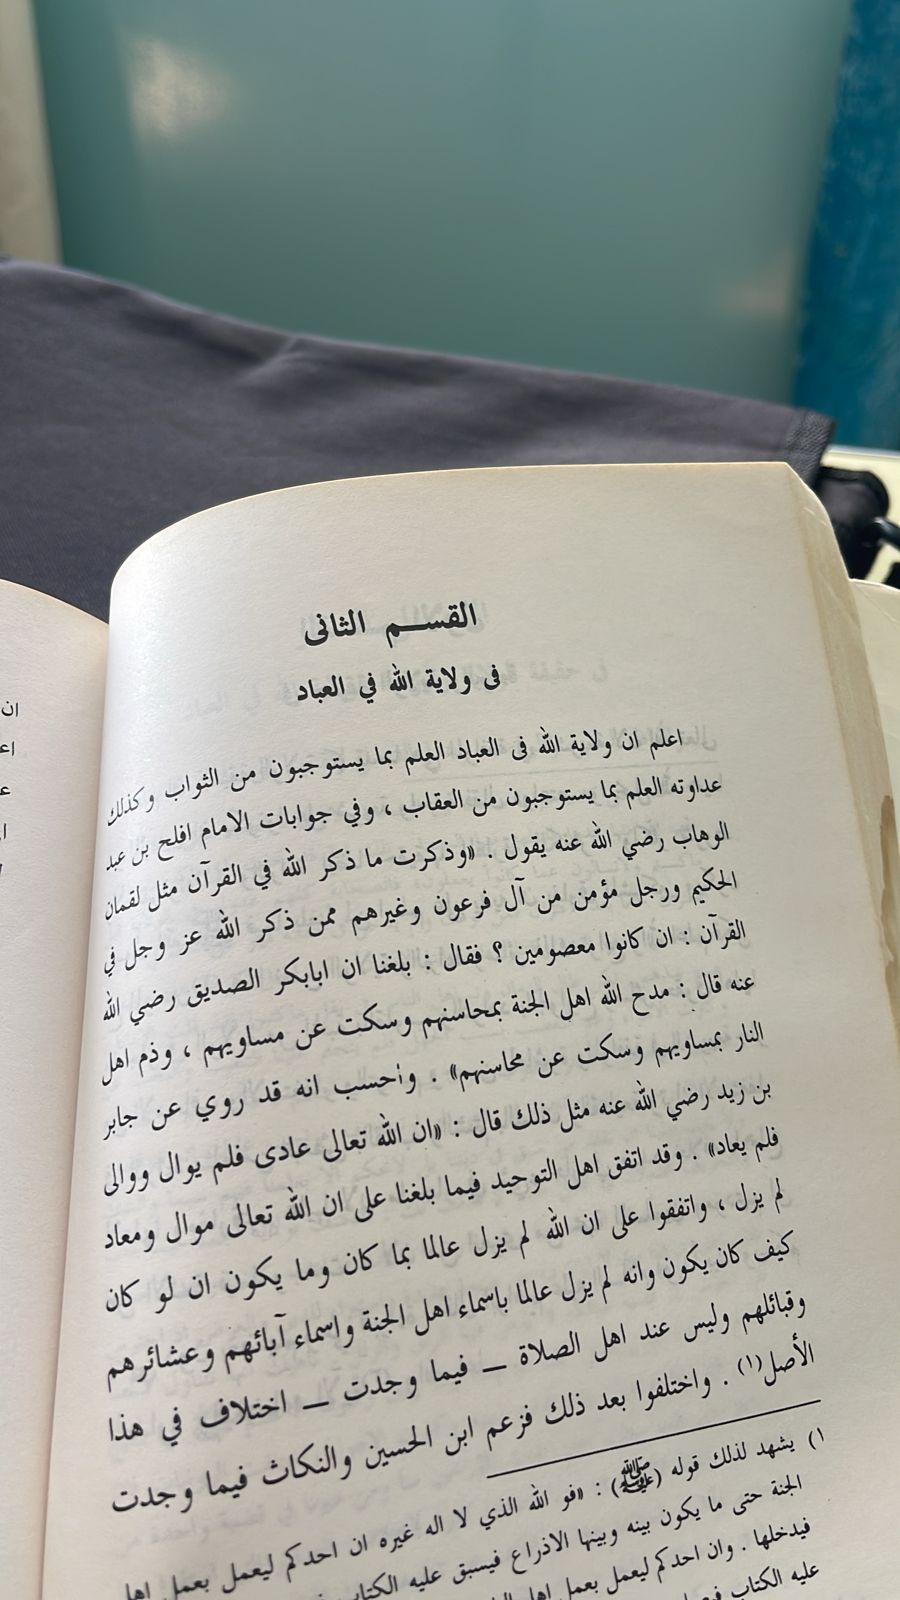 القســم الثانى
فى ولاية الله في العباد
اعلم ان ولاية الله فى العباد العلم بما يستوجبون من الثواب وكذلك
عداوته العلم بما يستوجبون من العقاب ، وفي جوابات الامام افلح بن عبد
الوهاب رضي الله عنه يقول . «وذكرت ما ذكر الله في القرآن مثل لقمان
الحكيم ورجل مؤمن من آل فرعون وغيرهم ممن ذكر الله عز وجل في
القرآن : ان كانوا معصومين ؟ فقال : بلغنا ان ابابكر الصديق رضي الله
عنه قال : مدح الله اهل الجنة بمحاسنهم وسكت عن مساويهم ، وذم اهل
النار بمساويهم وسكت عن محاسنهم» . واحسب انه قد روي عن جابر
بن زيد رضي الله عنه مثل ذلك قال : «ان الله تعالى عادى فلم يوال ووالى
فلم يعاد» . وقد اتفق اهل التوحيد فيما بلغنا على ان الله تعالى موال ومعاد
لم يزل ، واتفقوا على ان الله لم يزل عالما بما كان وما يكون ان لو كان
كيف كان يكون وانه لم يزل عالما باسماء اهل الجنة واسماء آبائهم وعشائرهم
وقبائلهم وليس عند اهل الصلاة ــ فيما وجدت ــ اختلاف في هذا
الأصل(١) . واختلفوا بعد ذلك فزعم ابن الحسين والنكاث فيما وجدت
١) يشهد لذلك قوله (ﷺ) : «فو الله الذي لا اله غيره ان احدكم ليعمل بعمل اهل
الجنة حتى ما يكون بينه وبينها الاذراع فيسبق عليه الكتاب
فيدخلها . وان احدكم ليعمل بعمل اهل
عليه الكتاب